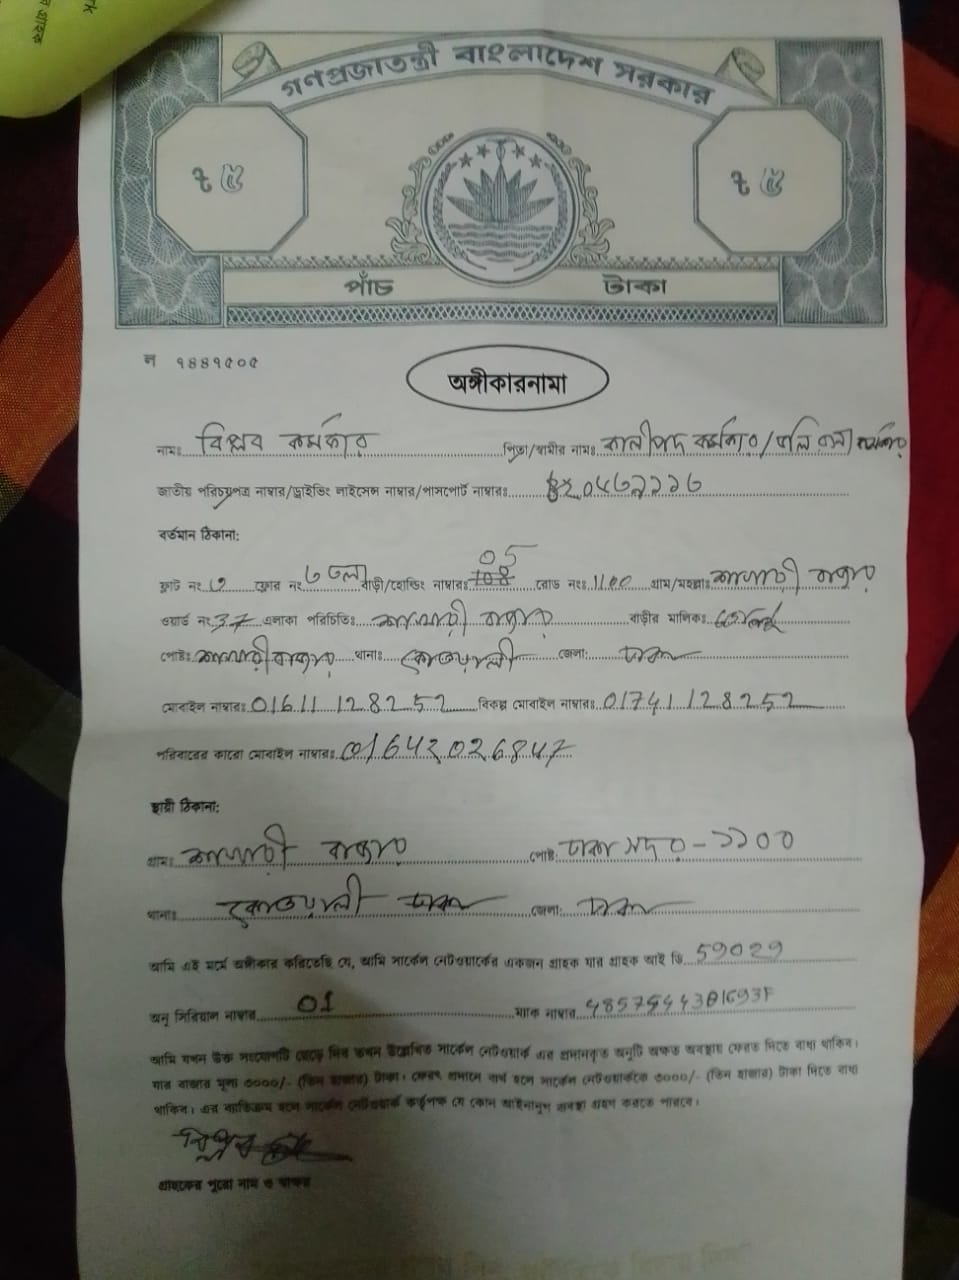 গণপ্রজাতন্ত্রী বাংলাদেশ সরকার
ট ৫ ট ৫
পাঁচ টাকা
ল ৭৪৪৭৫০৫
অঙ্গীকারনামা
নামঃ বিপ্লব কর্মকার পিতা/স্বামীর নামঃ কালীপদ কর্মকার/
জাতীয় পরিচয়পত্র নাম্বার/ড্রাইভিং লাইসেন্স নাম্বার/পাসপোর্ট নাম্বারঃ
বর্তমান ঠিকানা:
ফ্লাট নং ৩ ফ্লোর নংঃ ৩ তলা বাড়ী/হোল্ডিং নাম্বারঃ 05 রোড নংঃ 1100 গ্রাম/মহল্লাঃ
ওয়ার্ড নংঃ 37 এলাকা পরিচিতিঃ বাড়ীর মালিকঃ
পোষ্টঃ থানাঃ কোতয়ালী জেলা: ঢাকা
মোবাইল নাম্বারঃ 01611128252 বিকল্প মোবাইল নাম্বারঃ 01741128252
পরিবারের কারো মোবাইল নাম্বারঃ 01642026847
স্থায়ী ঠিকানা:
গ্রামঃ পোষ্ট: ঢাকা সদর - ১১০০
থানাঃ কোতয়ালী ঢাকা জেলা: ঢাকা
আমি এই মর্মে অঙ্গীকার করিতেছি যে, আমি সার্কেল নেটওয়ার্কের একজন গ্রাহক যার গ্রাহক আই ডি 59029
অনু সিরিয়াল নাম্বার 01 ম্যাক নাম্বার
আমি যখন উক্ত সংযোগটি ছেড়ে দিব তখন উল্লেখিত সার্কেল নেটওয়ার্ক এর প্রদানকৃত অনুটি অক্ষত অবস্থায় ফেরত দিতে বাধ্য থাকিব।
যার বাজার মূল্য ৩০০০/- (তিন হাজার) টাকা। ফেরৎ প্রদানে ব্যর্থ হলে সার্কেল নেটওয়ার্ককে ৩০০০/- (তিন হাজার) টাকা দিতে বাধ্য
থাকিব। এর ব্যতিক্রম হলে সার্কেল নেটওয়ার্ক কর্তৃপক্ষ যে কোন আইনানুগ ব্যবস্থা গ্রহণ করতে পারবে।
বিপ্লব
গ্রাহকের পুরো নাম ও স্বাক্ষর